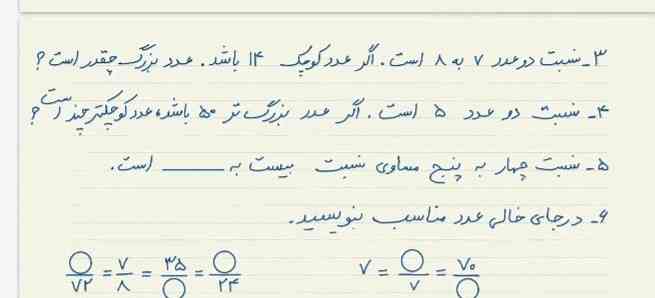 ۳_ نسبت دو عدد ۷ به ۸ است. اگر عدد کوچک ۱۴ باشد. عدد بزرگ چقدر است؟
۴_ نسبت دو عدد ۵ است. اگر عدد بزرگ تر ۵۰ باشد، عدد کوچکتر چند است؟
۵_ نسبت چهار به پنج مساوی نسبت بیست به ____ است.
۶_ در جای خالی عدد مناسب بنویسید.
○/۷۲ = ۷/۸ = ۳۵/○ = ○/۲۴    ۷ = ○/۷ = ۷۰/○